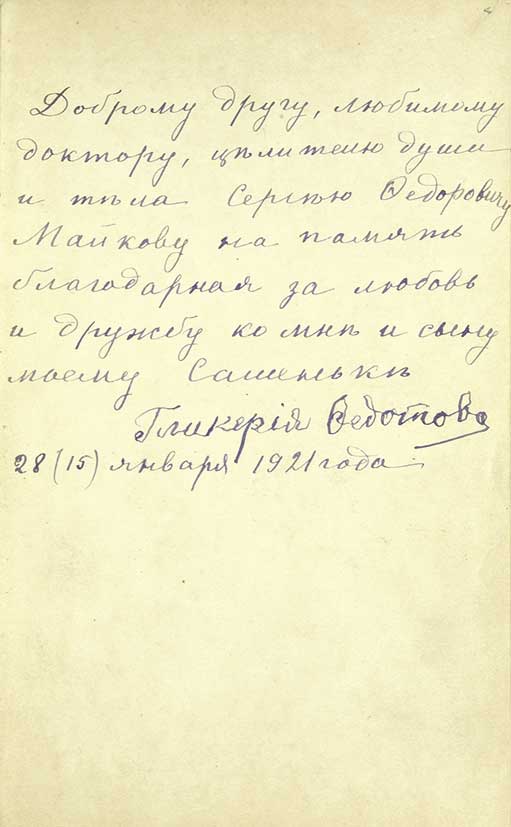 Доброму другу, любимому
доктору, цѣлителю души
и тѣла Сергѣю Ѳедоровичу
Майкову на память
благодарная за любовь
и дружбу ко мнѣ и сыну
моему Сашенькѣ
Гликерія Ѳедотова
28 (15) января 1921 года